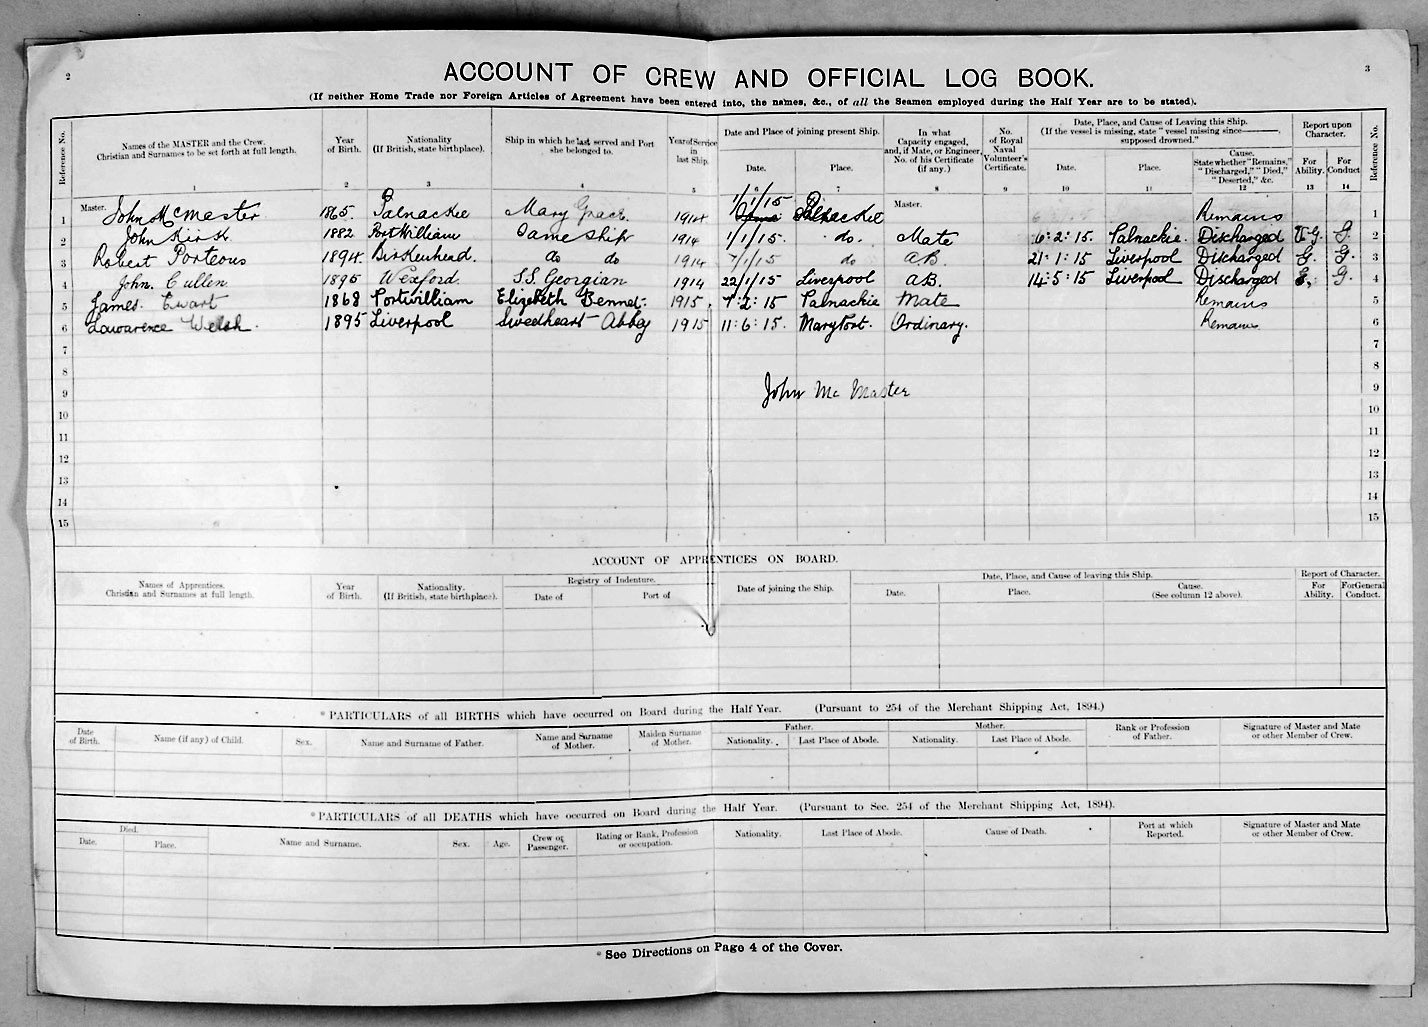 2
3
ACCOUNT OF CREW AND OFFICIAL LOG BOOK.
(If neither Home Trade nor Foreign Articles of Agreement have been entered into, the names, &c., of all the Seamen employed during the Half Year are to be stated).
Reference No. Names of the MASTER and the Crew. Christian and Surnames to be set forth at full length. Year of Birth. Nationality (If British, state birthplace). Ship in which he last served and Port she belonged to. Year of Service in last Ship. Date and Place of joining present Ship. Date. Place. In what Capacity engaged, and, if Mate, or Engineer, No. of his Certificate (if any.) No. of Royal Naval Volunteer's Certificate. Date, Place, and Cause of Leaving this Ship. (If the vessel is missing, state "vessel missing since———, supposed drowned." Date. Place. Cause. State whether "Remains," "Discharged," "Died," "Deserted," &c. Report upon Character. For Ability. For Conduct Reference No.
1 2 3 4 5 6 7 8 9 10 11 12 13 14
1 Master. John McMaster 1865. Palnackie Mary Grace. 1914 1/1/15 Palnackie Master. Remains 1
2 John Kirk 1882 Port William Same Ship 1914 1/1/15. do. Mate 6:2:15. Palnackie. Discharged V.G. G. 2
3 Robert Porteous 1894. Birkenhead. do do 1914 1/1/15 do A.B. 21:1:15 Liverpool Discharged G. G. 3
4 John. Cullen 1895 Wexford. S.S. Georgian 1914 22/1/15 Liverpool A.B. 14:5:15 Liverpool Discharged G. G. 4
5 James. Ewart 1868 Portwilliam Elizabeth Bennet. 1915. 7:2:15 Palnackie Mate Remains 5
6 Lawarence Welsh. 1895 Liverpool Sweedheart Abbey 1915 11:6:15. Maryport. Ordinary. Remains 6
7 7
8 8
9 John Mc Master 9
10 10
11 11
12 12
13 13
14 14
15 15
ACCOUNT OF APPRENTICES ON BOARD.
Names of Apprentices. Christian and Surnames at full length. Year of Birth. Nationality. (If British, state birthplace). Registry of Indenture. Date of Port of Date of joining the Ship. Date, Place, and Cause of leaving this Ship. Date. Place. Cause. (See column 12 above). Report of Character. For Ability. For General Conduct.
*PARTICULARS of all BIRTHS which have occurred on Board during the Half Year. (Pursuant to 254 of the Merchant Shipping Act, 1894.)
Date of Birth. Name (if any) of Child. Sex. Name and Surname of Father. Name and Surname of Mother. Maiden Surname of Mother. Father. Nationality. Last Place of Abode. Mother. Nationality. Last Place of Abode. Rank or Profession of Father. Signature of Master and Mate or other Member of Crew.
*PARTICULARS of all DEATHS which have occurred on Board during the Half Year. (Pursuant to Sec. 254 of the Merchant Shipping Act, 1894).
Died. Date. Place. Name and Surname. Sex. Age. Crew or Passenger. Rating or Rank, Profession or occupation. Nationality. Last Place of Abode. Cause of Death. Port at which Reported. Signature of Master and Mate or other Member of Crew.
*See Directions on Page 4 of the Cover.